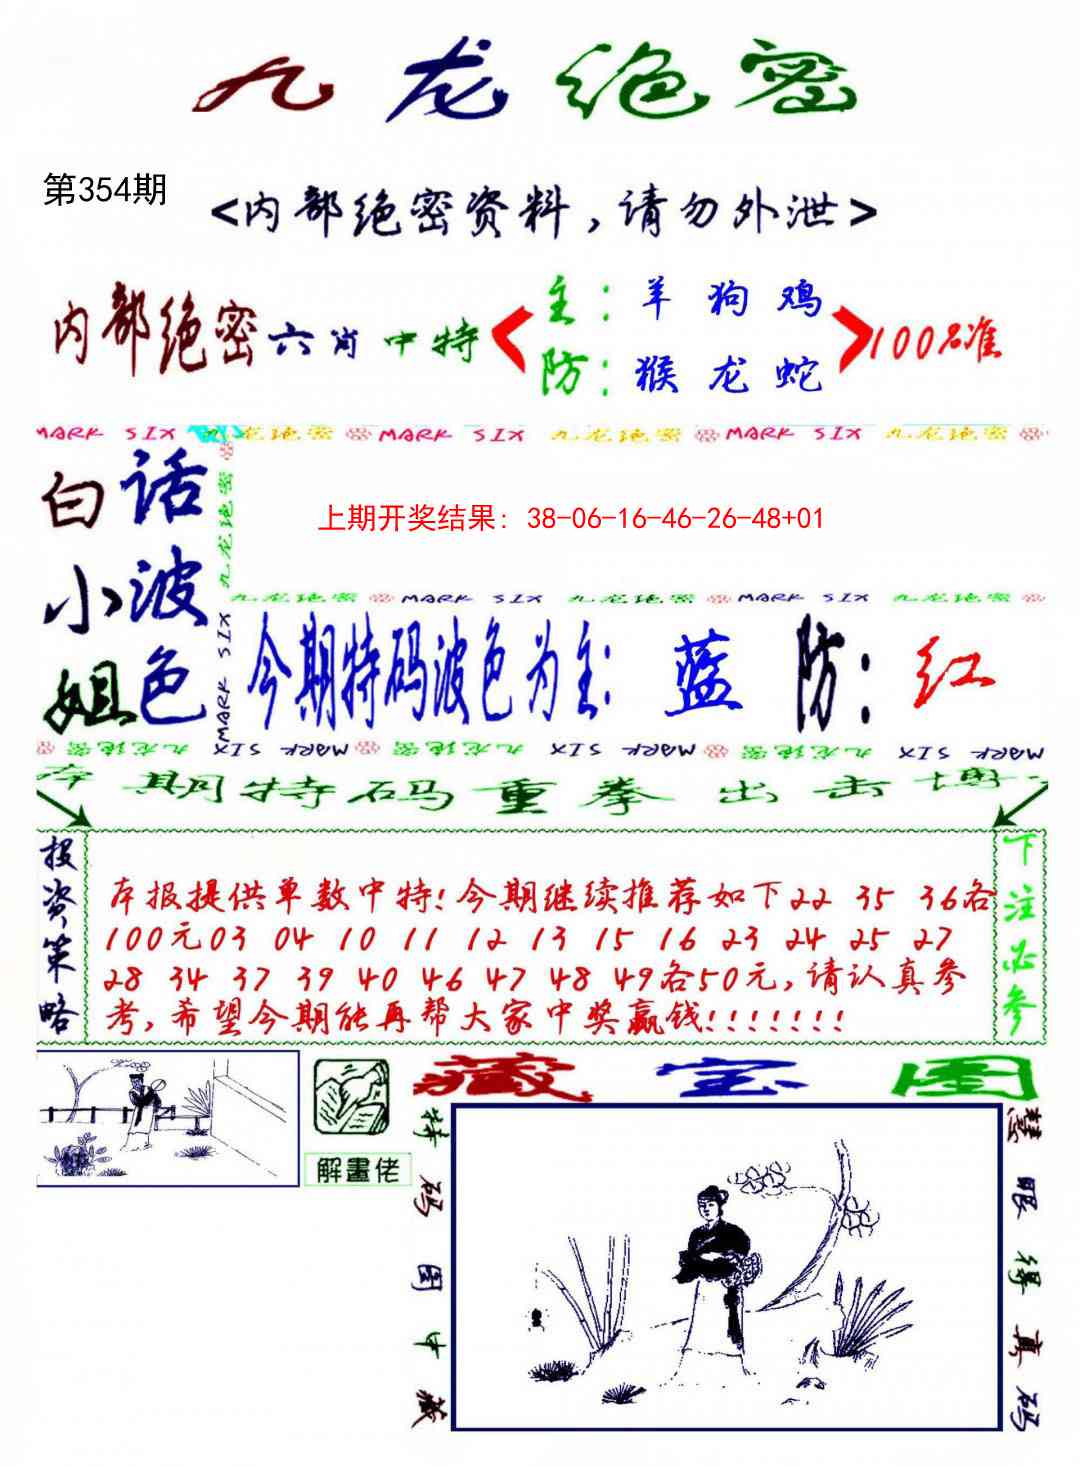 九龙绝密
第354期
<内部绝密资料,请勿外泄>
内部绝密六肖中特
主:羊 狗 鸡
防:猴 龙 蛇
100%准
MARK SIX 九龙绝密 MARK SIX 九龙绝密 MARK SIX 九龙绝密
白话小波姐色
九龙绝密
MARK SIX
上期开奖结果: 38-06-16-46-26-48+01
九龙绝密 MARK SIX 九龙绝密 MARK SIX 九龙绝密
今期特码波色为主: 蓝 防: 红
九龙绝密 MARK SIX 九龙绝密 MARK SIX 九龙绝密 MARK SIX
本期特码重拳出击博
投资策略
本报提供单数中特!今期继续推荐如下22 35 36各
100元03 04 10 11 12 13 15 16 23 24 25 27
28 34 37 39 40 46 47 48 49各50元,请认真参
考,希望今期能再帮大家中奖赢钱!!!!!!!
下注必参
解畫佬
藏宝图
特码图中藏
慧眼得真码